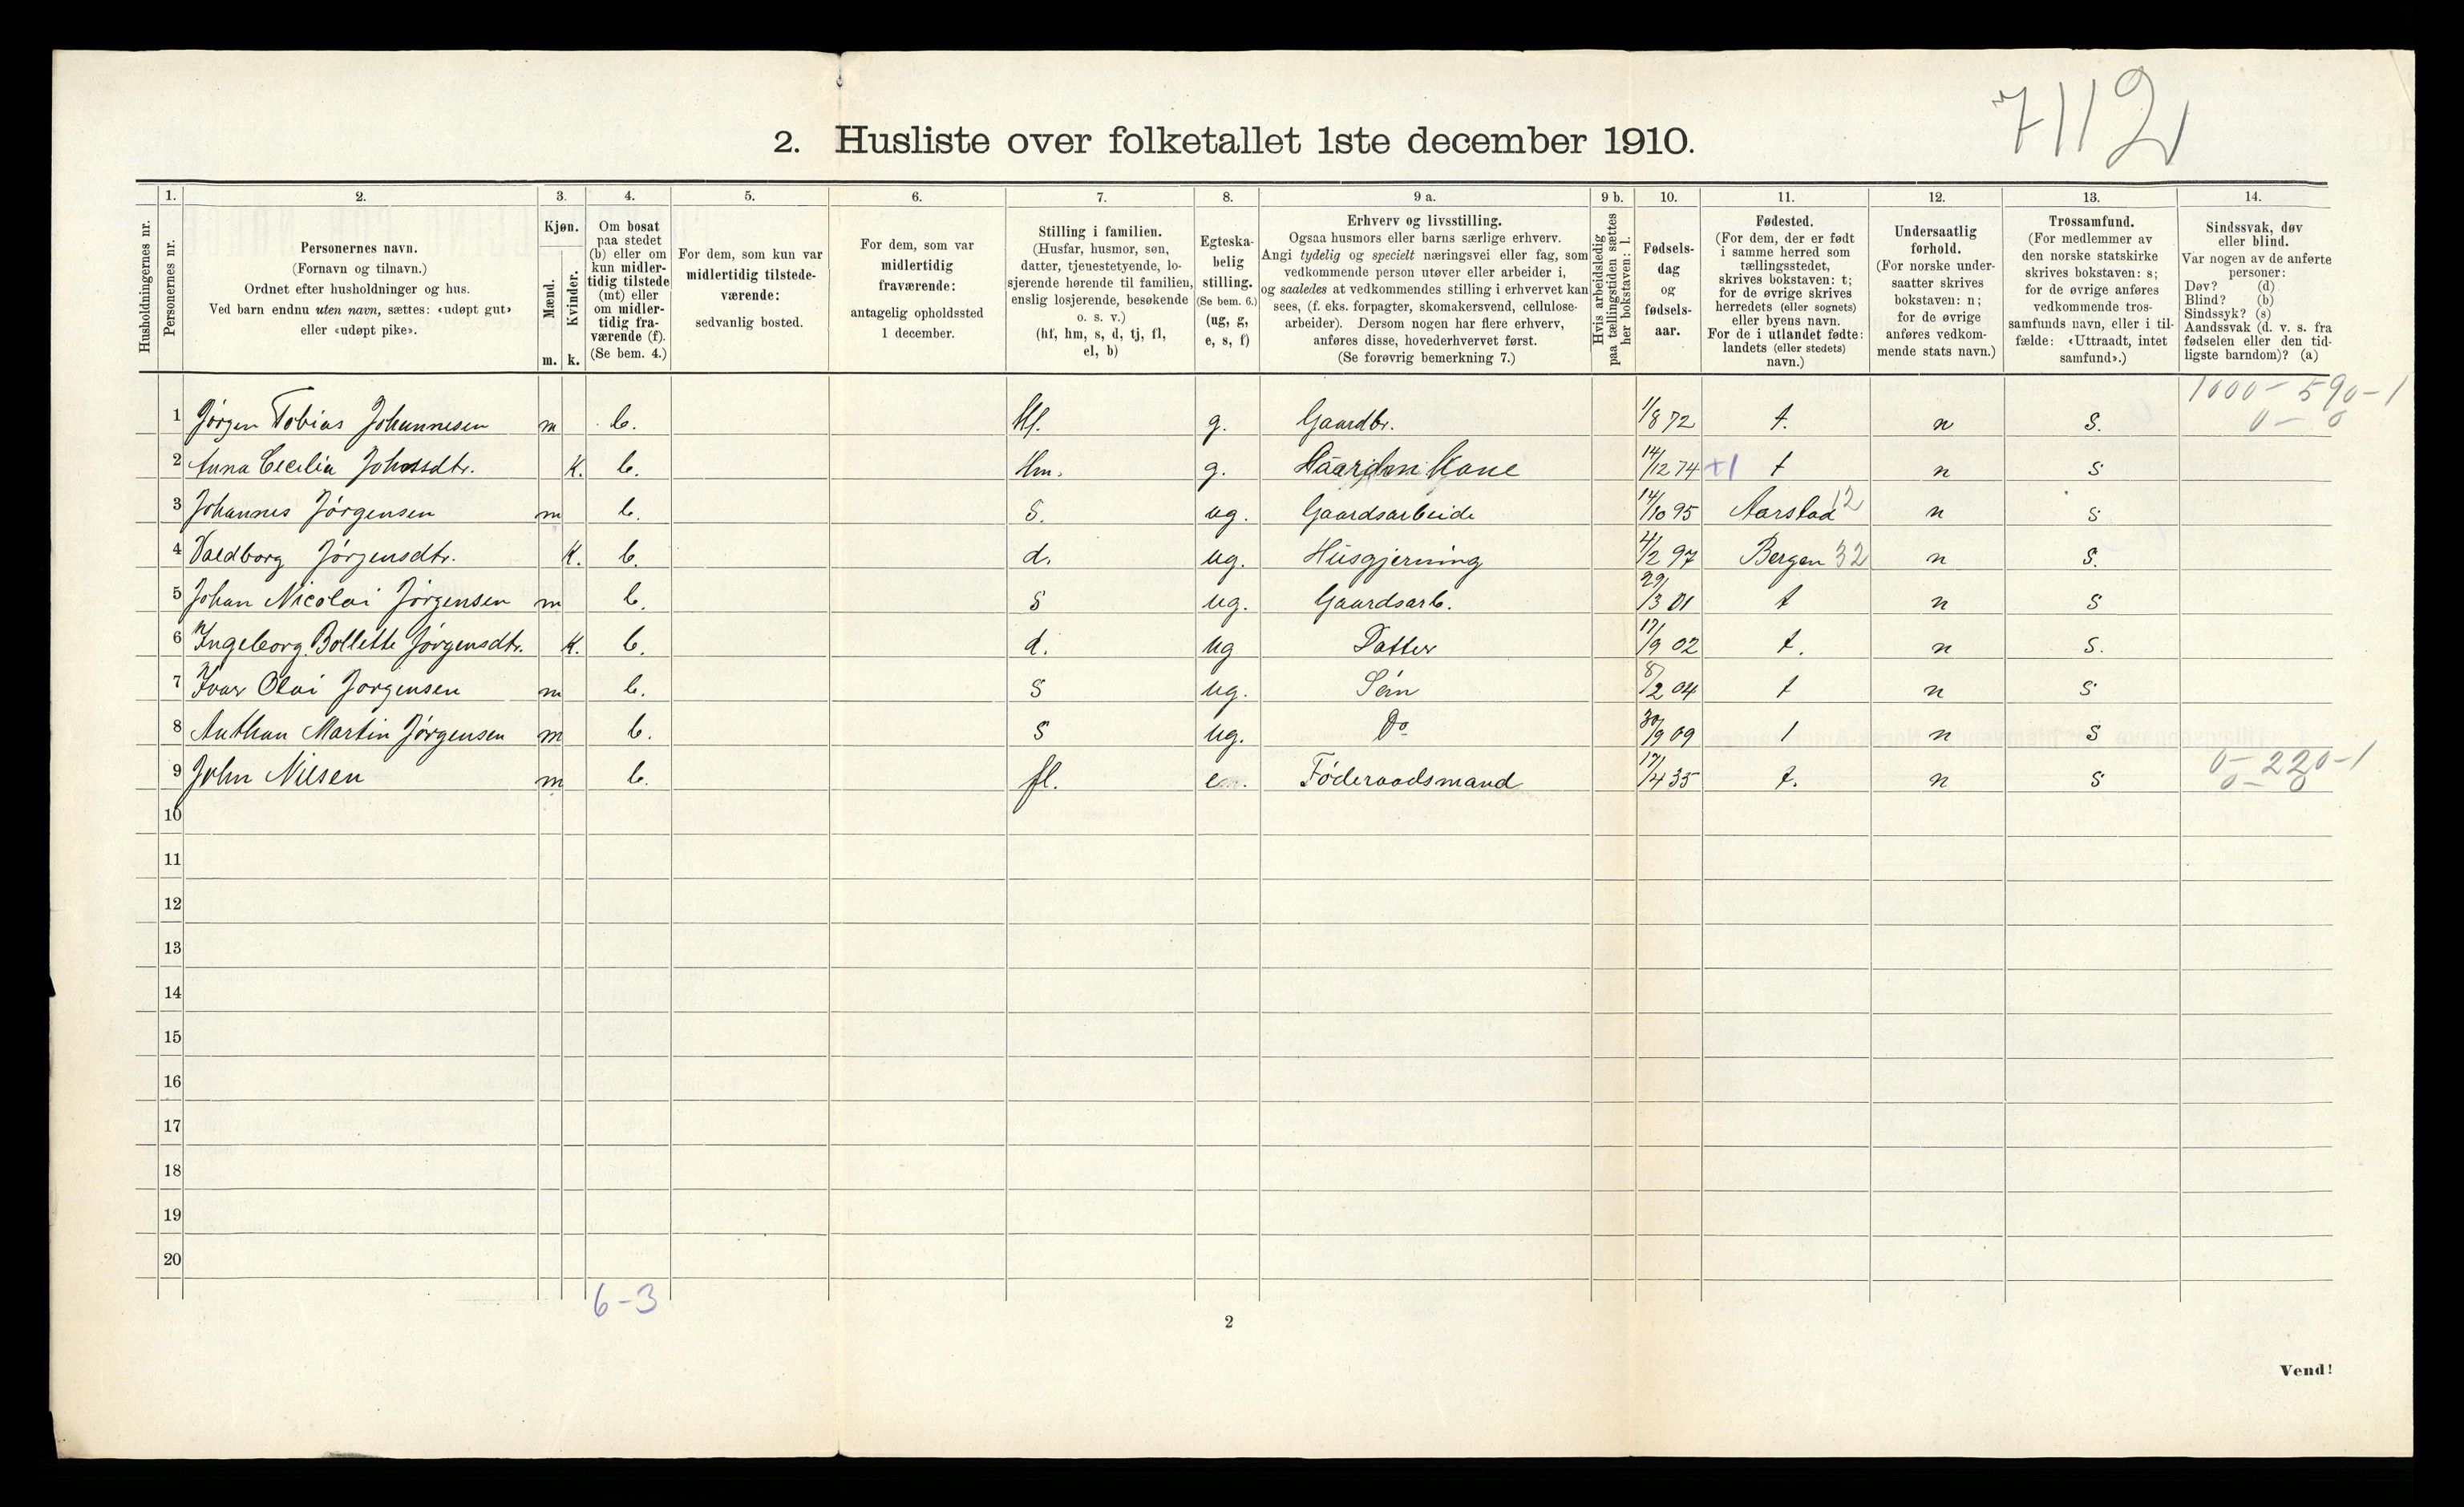 7112
2. Husliste over folketallet 1ste december 1910.
Husholdningernes nr.
1. Personernes nr.
2. Personernes navn. (Fornavn og tilnavn.) Ordnet efter husholdninger og hus. Ved barn endnu uten navn, sættes: «udøpt gut» eller «udøpt pike».
3. Kjøn. Mænd. m. Kvinder. k.
4. Om bosat paa stedet (b) eller om kun midlertidig tilstede (mt) eller om midlertidig fraværende (f). (Se bem. 4.)
5. For dem, som kun var midlertidig tilstedeværende: sedvanlig bosted.
6. For dem, som var midlertidig fraværende: antagelig opholdssted 1 december.
7. Stilling i familien. (Husfar, husmor, søn, datter, tjenestetyende, losjerende hørende til familien, enslig losjerende, besøkende o. s. v.) (hf, hm, s, d, tj, fl, el, b)
8. Egteskabelig stilling. (Se bem. 6.) (ug, g, e, s, f)
9 a. Erhverv og livsstilling. Ogsaa husmors eller barns særlige erhverv. Angi tydelig og specielt næringsvei eller fag, som vedkommende person utøver eller arbeider i, og saaledes at vedkommendes stilling i erhvervet kan sees, (f. eks. forpagter, skomakersvend, cellulosearbeider). Dersom nogen har flere erhverv, anføres disse, hovederhvervet først. (Se forøvrig bemerkning 7.)
9 b. Hvis arbeidsledig paa tællingstiden sættes her bokstaven: l.
10. Fødselsdag og fødselsaar.
11. Fødested. (For dem, der er født i samme herred som tællingsstedet, skrives bokstaven: t; for de øvrige skrives herredets (eller sognets) eller byens navn. For de i utlandet fødte: landets (eller stedets) navn.)
12. Undersaatlig forhold. (For norske undersaatter skrives bokstaven: n; for de øvrige anføres vedkommende stats navn.)
13. Trossamfund. (For medlemmer av den norske statskirke skrives bokstaven: s; for de øvrige anføres vedkommende trossamfunds navn, eller i tilfælde: «Uttraadt, intet samfund».)
14. Sindssvak, døv eller blind. Var nogen av de anførte personer: Døv? (d) Blind? (b) Sindssyk? (s) Aandssvak (d. v. s. fra fødselen eller den tidligste barndom)? (a)
1000 - 590 - 1
0 - 0
1 Jørgen Tobias Johannesen m b. Hf. g. Gaardbr. 1/8 72 t. n s.
2 Anna Cecilia K. b. Hm. g. Kone 14/12 74 +1 t n s
3 Johannes Jørgensen m b. s. ug. Gaardsarbeide 14/10 95 Aarstad 12 n s
4 Valdborg Jørgensdtr. K. b. d. ug. Husgjerning 4/2 97 Bergen 32 n s.
5 Johan Nicolai Jørgensen m b. s ug. Gaardsarb. 29/3 01 t n s
6 Ingeborg Bollette Jørgensdtr. K. b. d. ug Datter 17/9 02 t. n s.
7 Ivar Olai Jørgensen m b. s ug. Søn 8/2 04 t n s
8 Anthon Martin Jørgensen m b. s ug. Do 30/9 09 t n s
9 John Nilsen m b. fl. e Føderaadsmand 17/4 35 t. n s 0 - 220 - 1
0 - 0
10
11
12
13
14
15
16
17
18
19
20
6 - 3
2
Vend!